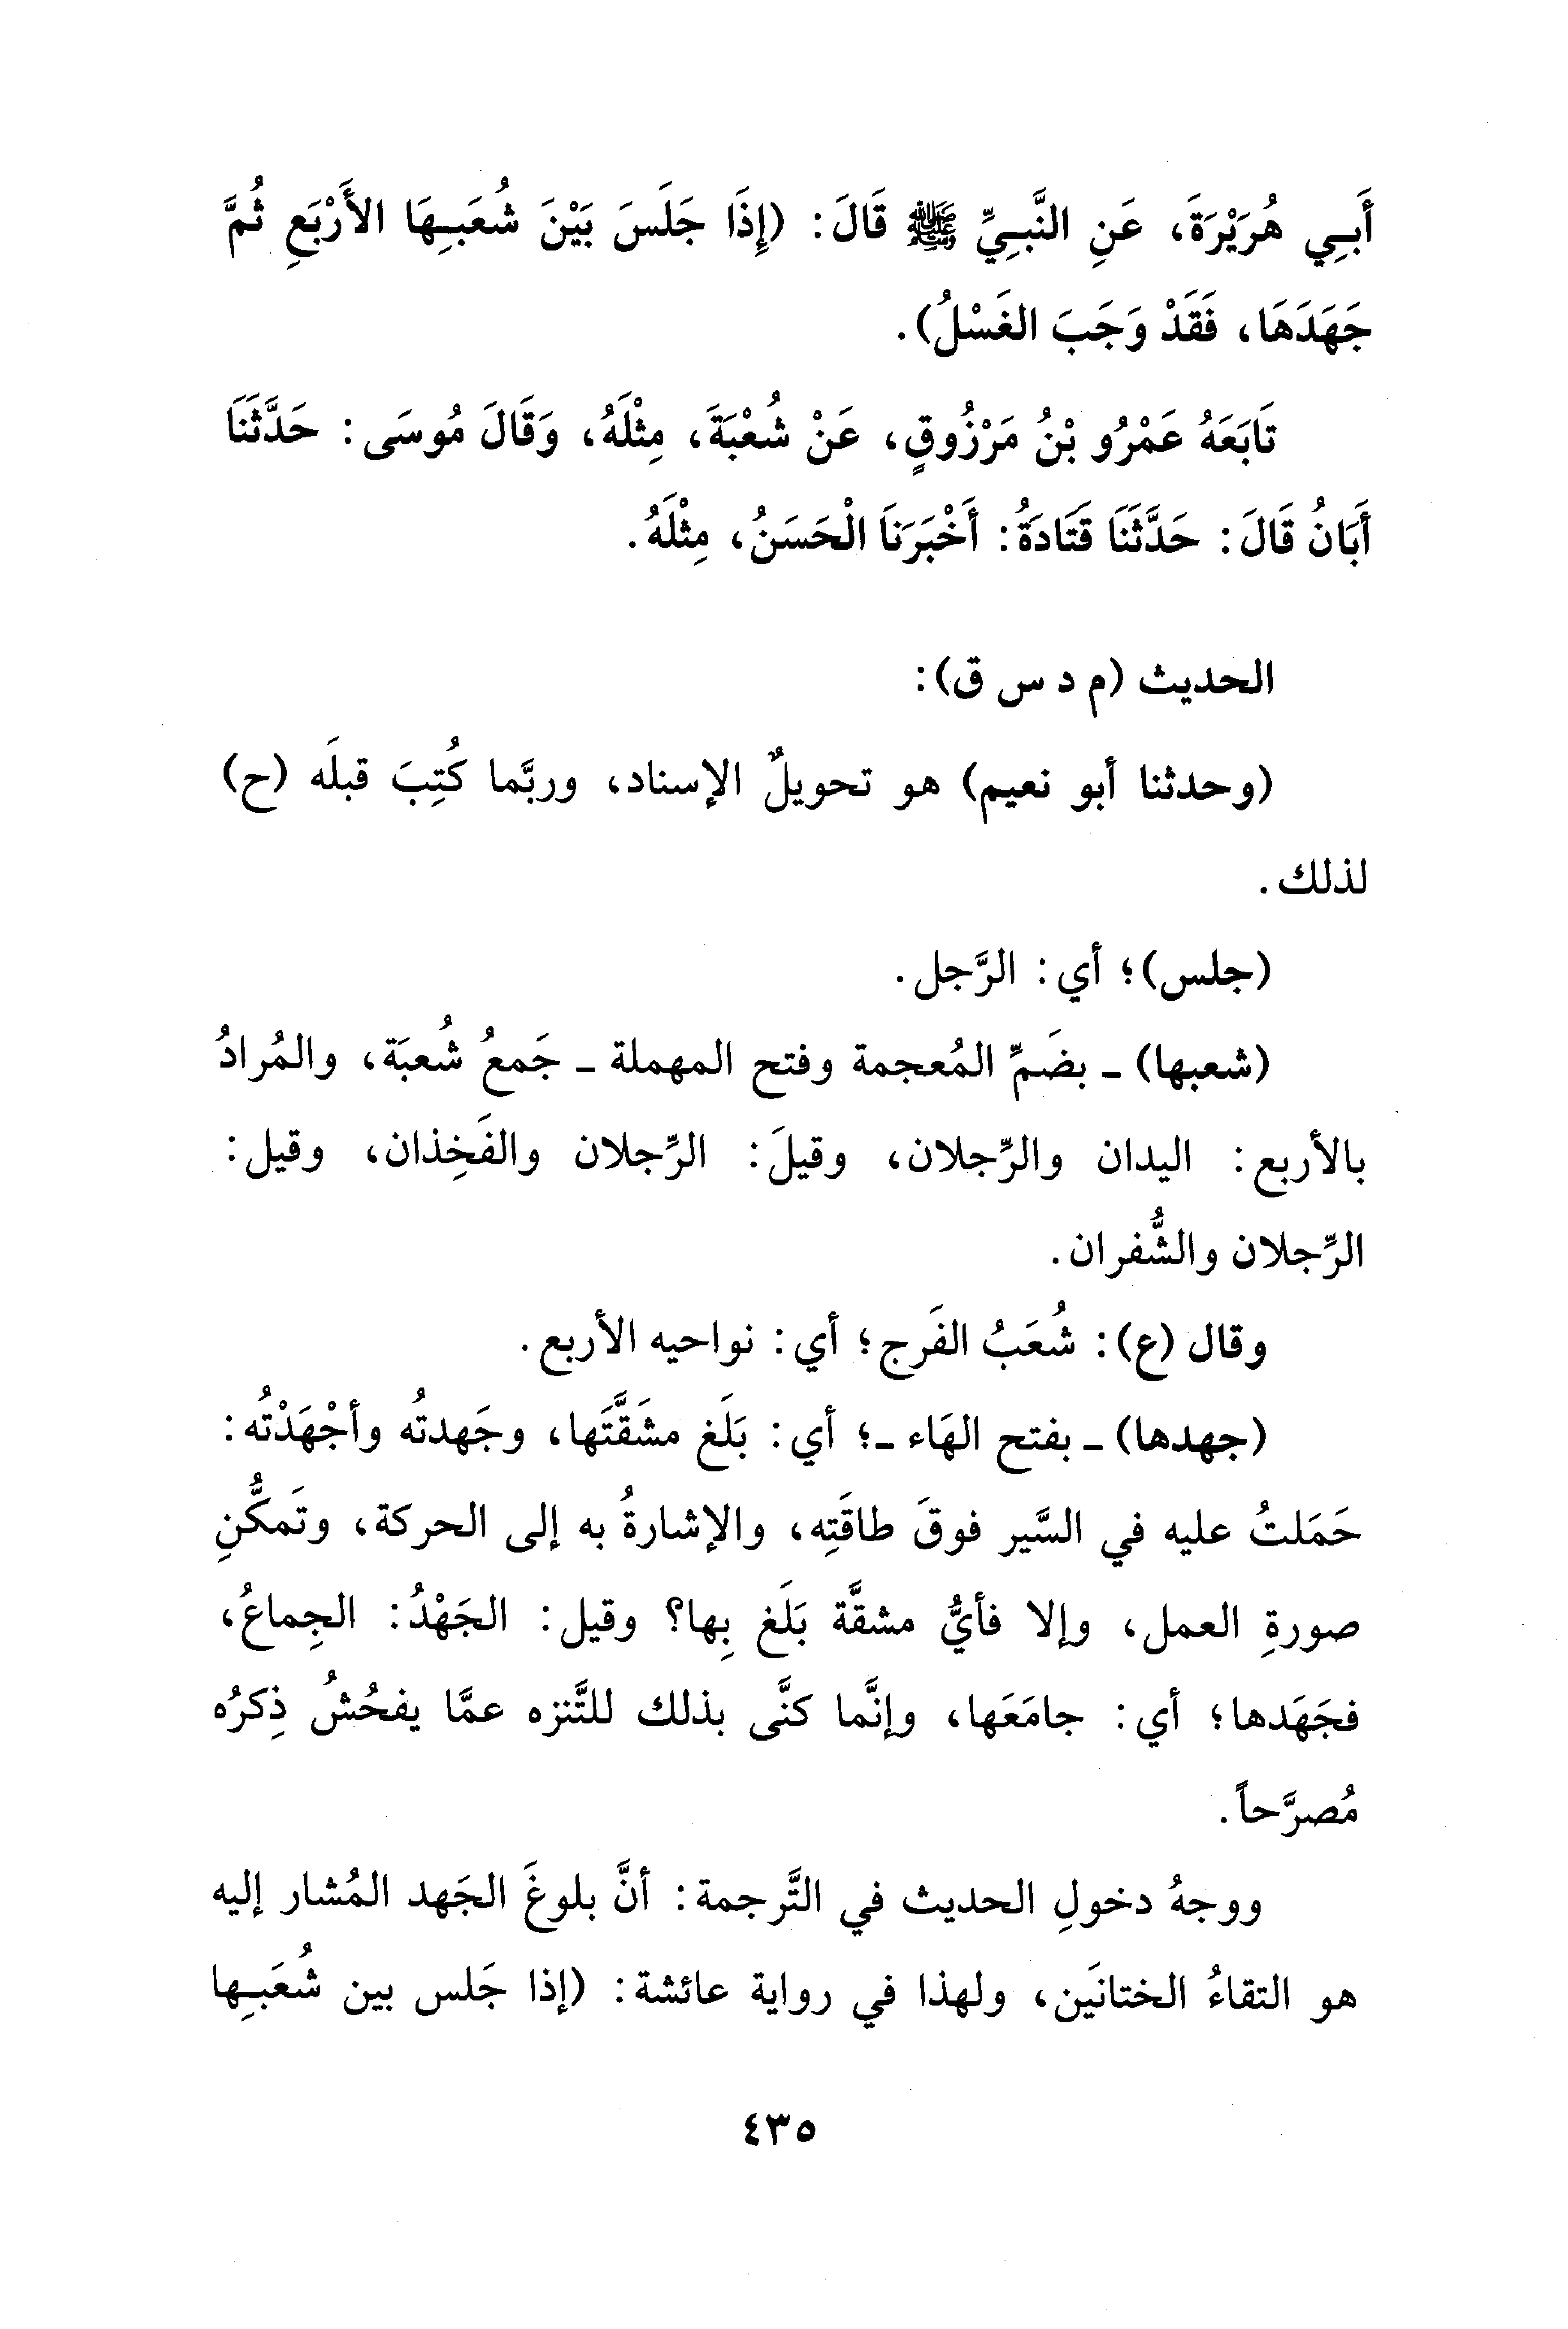 أَبِي هُرَيْرَةَ، عَنِ النَّبِيِّ ﷺ قَالَ: (إِذَا جَلَسَ بَيْنَ شُعَبِهَا الأَرْبَعِ ثُمَّ
جَهَدَهَا، فَقَدْ وَجَبَ الغَسْلُ).
تَابَعَهُ عَمْرُو بْنُ مَرْزُوقٍ، عَنْ شُعْبَةَ، مِثْلَهُ، وَقَالَ مُوسَى: حَدَّثَنَا
أَبَانُ قَالَ: حَدَّثَنَا قَتَادَةُ: أَخْبَرَنَا الْحَسَنُ، مِثْلَهُ.
الحديث (م د س ق):
(وحدثنا أبو نعيم) هو تحويلٌ الإسناد، وربَّما كُتِبَ قبلَه (ح)
لذلك.
(جلس)؛ أي: الرَّجل.
(شعبها) ـ بضَمِّ المُعجمة وفتح المهملة ـ جَمعُ شُعبَة، والمُرادُ
بالأربع: اليدان والرِّجلان، وقيلَ: الرِّجلان والفَخِذان، وقيل:
الرِّجلان والشُّفران.
وقال (ع): شُعَبُ الفَرج؛ أي: نواحيه الأربع.
(جهدها) ـ بفتح الهَاء ـ؛ أي: بَلَغ مشَقَّتَها، وجَهدتُه وأجْهَدْتُه:
حَمَلتُ عليه في السَّير فوقَ طاقَتِه، والإشارةُ به إلى الحركة، وتَمكُّنِ
صورةِ العمل، وإلا فأيُّ مشقَّة بَلَغ بِها؟ وقيل: الجَهْدُ: الجِماعُ،
فجَهَدها؛ أي: جامَعَها، وإنَّما كنَّى بذلك للتَّنزه عمَّا يفحُشُ ذِكرُه
مُصرَّحاً.
ووجهُ دخولِ الحديث في التَّرجمة: أنَّ بلوغَ الجَهد المُشار إليه
هو التقاءُ الختانَين، ولهذا في رواية عائشة: (إذا جَلس بين شُعَبِها
٤٣٥